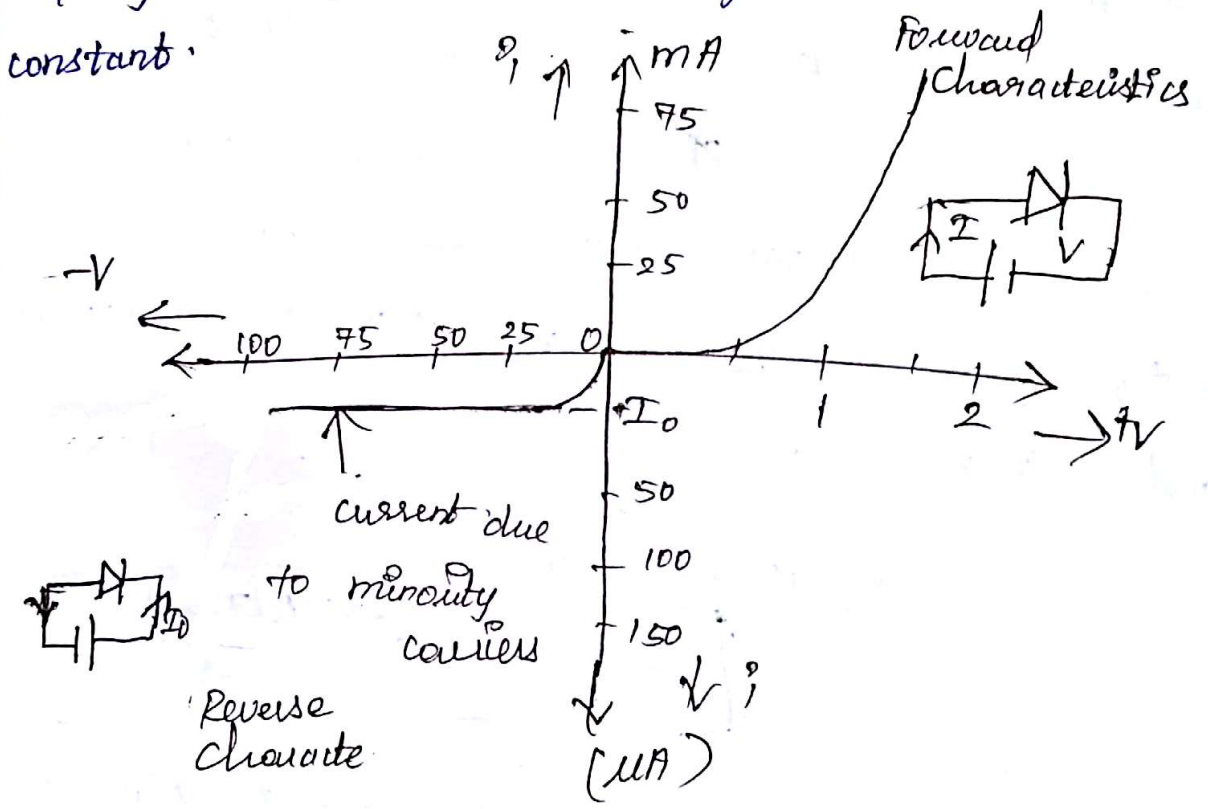 constant.
i ↑ mA
Forward
Characteristics
75
50
25
I
V
-V
100 75 50 25 0
I₀
1 2
+V
current due
to minority
carriers
50
100
150
I₀
↓ i
(μA)
Reverse
Characte